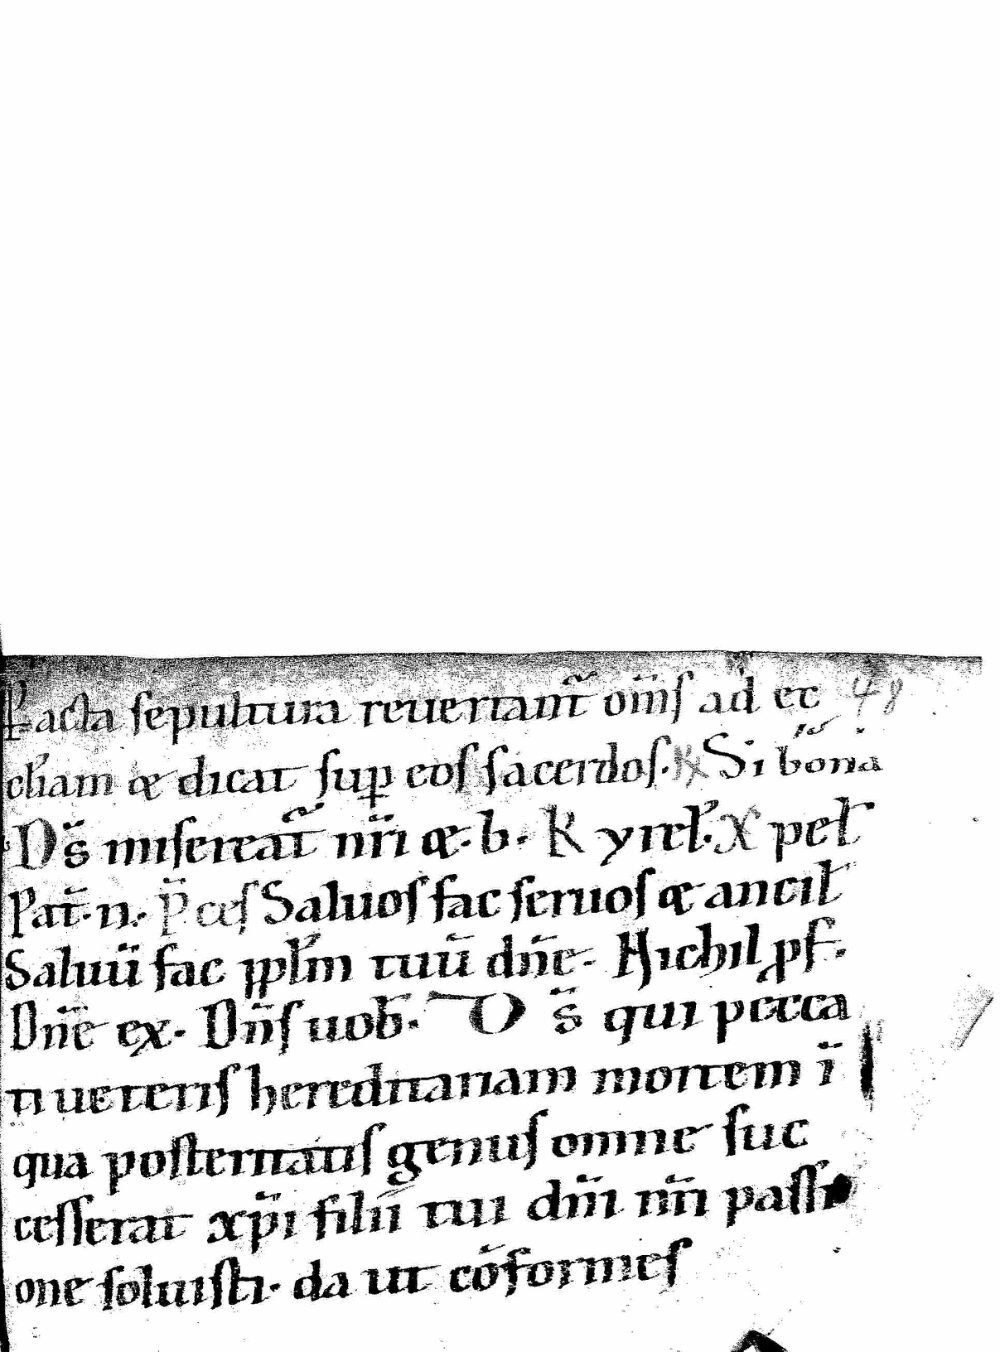 Facta sepultura reuertant̃ om̄s ad ec 48
cl̄iam & dicat sup eos sacerdos. ℟ Si bona
D̄s misereat̃ nr̄i &. b. Kyrel̃. Xpel̃
Pat̄. n. P̄ces Saluos fac seruos & ancil̃
Saluū fac ppl̄m tuū dn̄e. Nichil pf.
Dn̄e ex. Dn̄s uob̄. D̄s qui pecca
ti ueteris hereditariam mortem ī
qua posteritatis genus omne suc
cesserat xp̄i filii tui dn̄i nr̄i passi
one soluisti. da ut cōformes